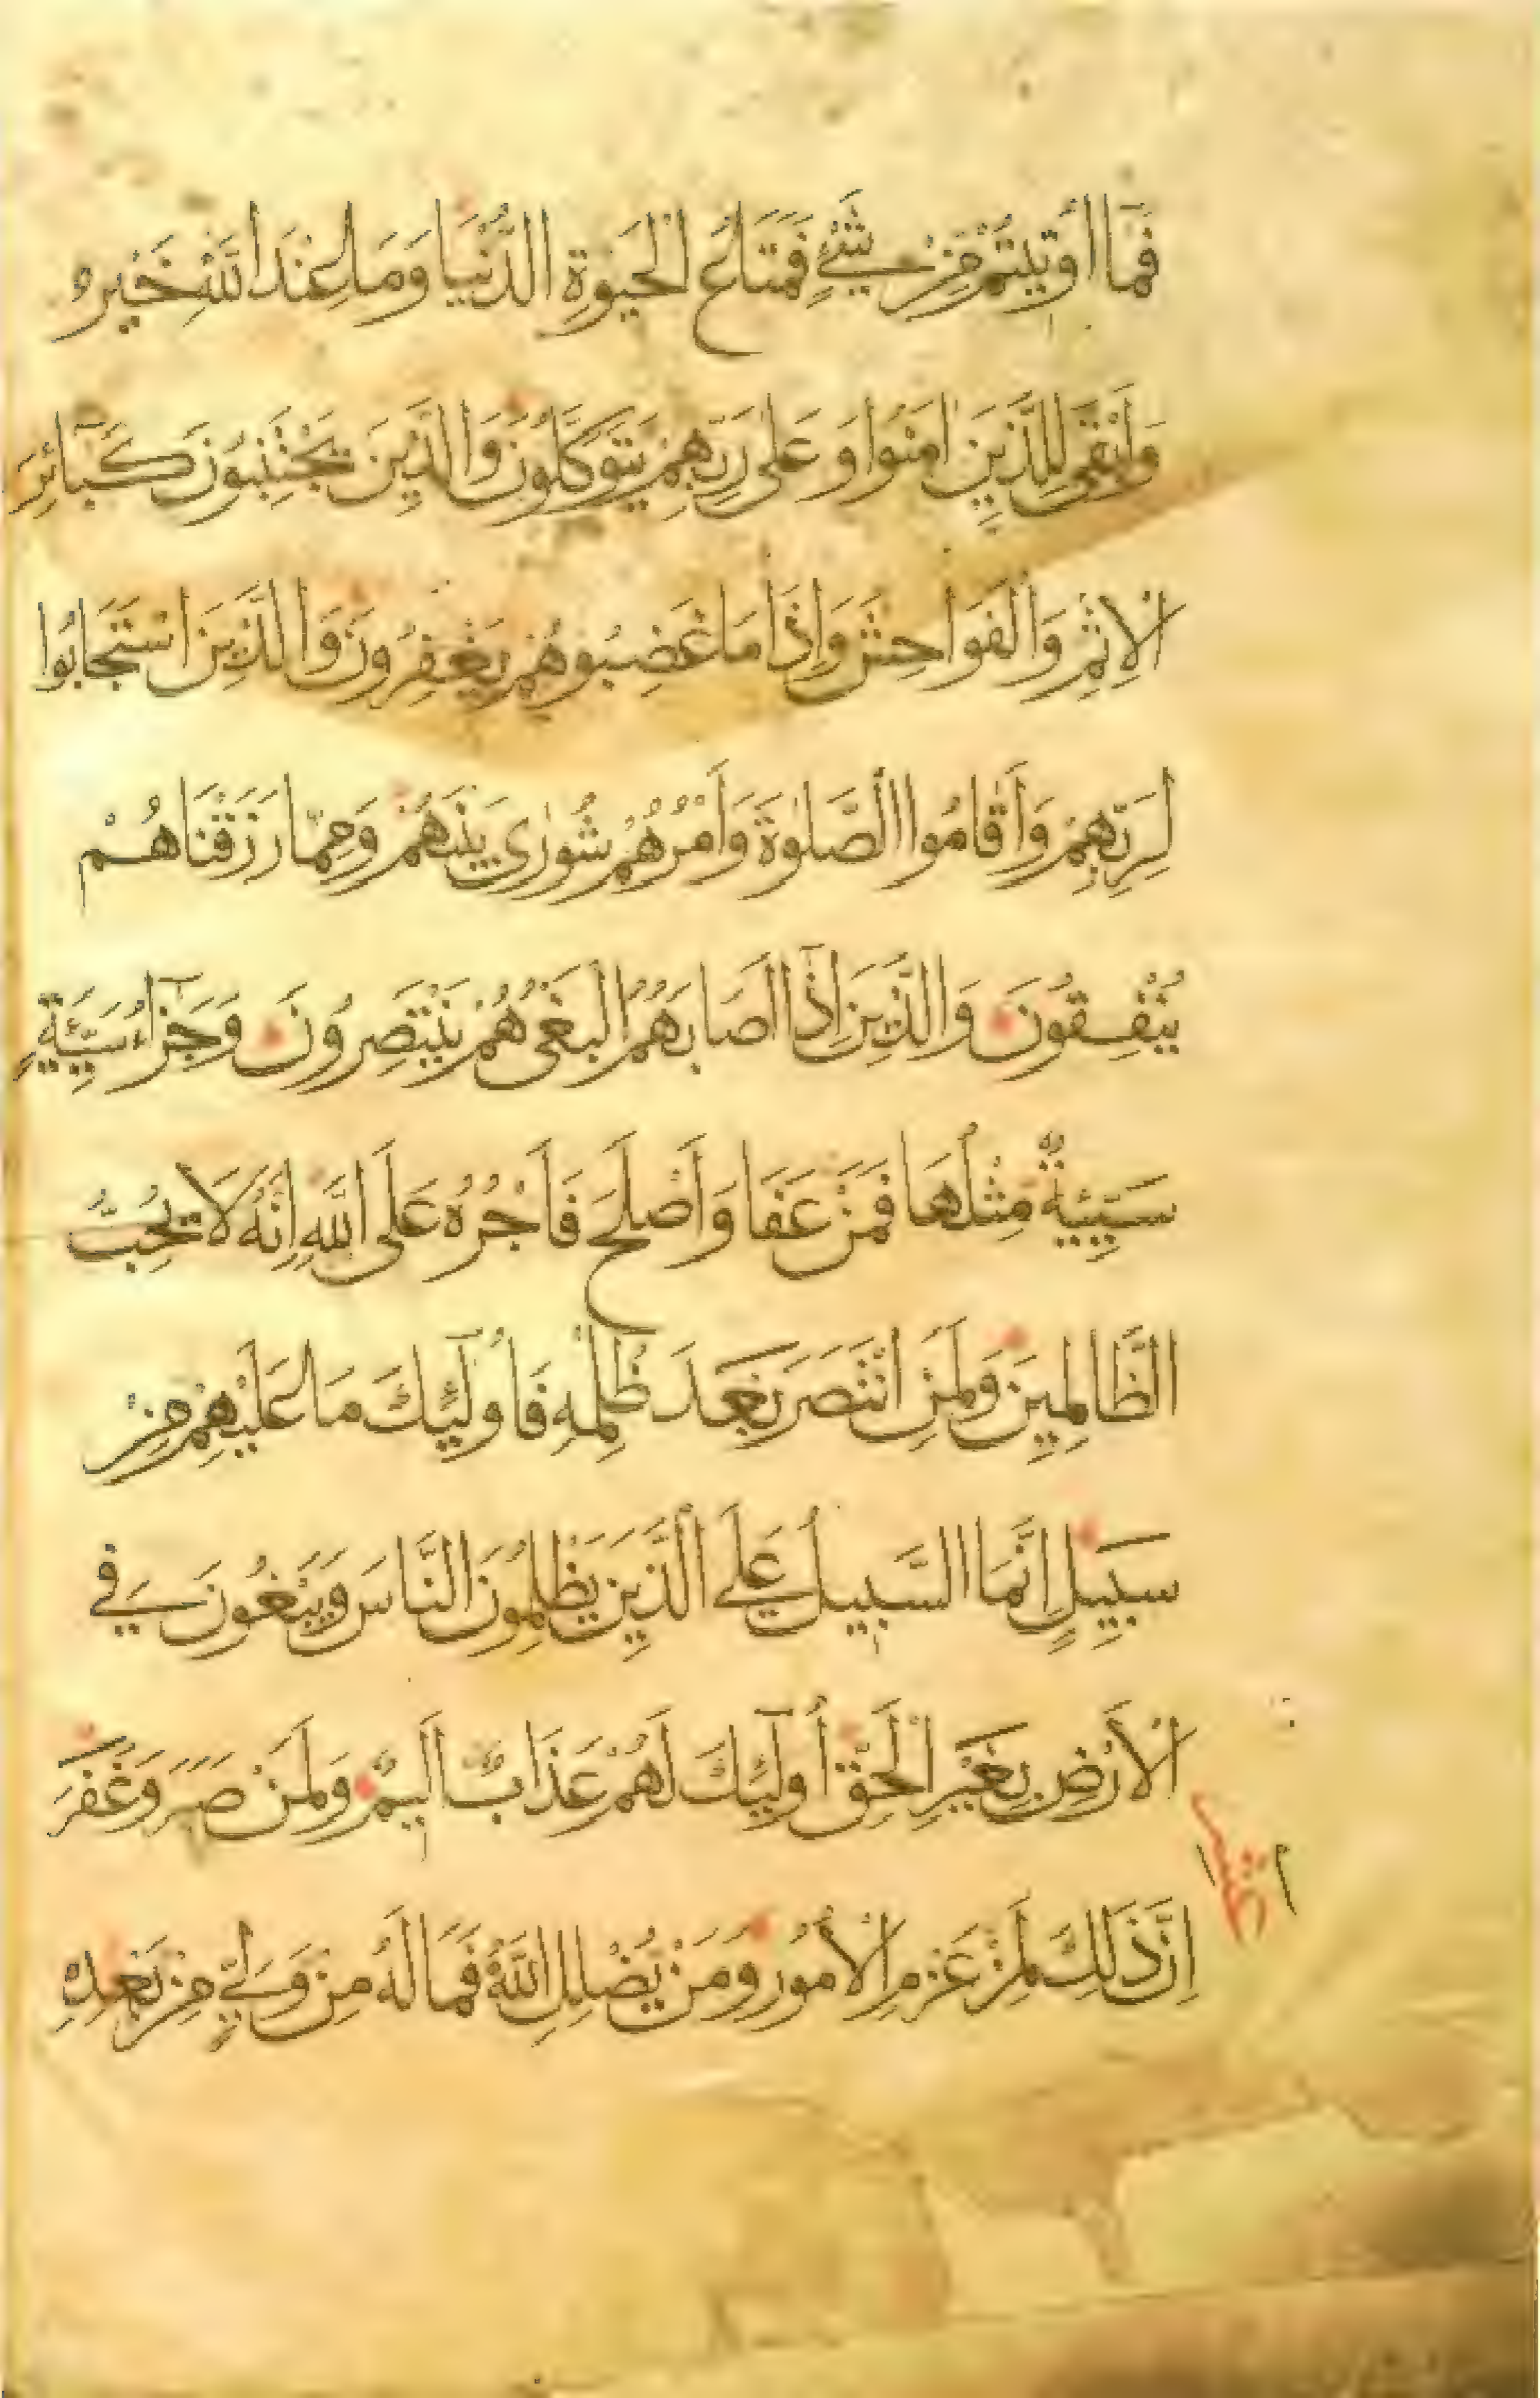 فَمَا أُوتِيتُمْ مِنْ شَيْءٍ فَمَتَاعُ الْحَيٰوةِ الدُّنْيَا وَمَا عِنْدَ اللّٰهِ خَيْرٌ
وَأَبْقٰى لِلَّذِينَ اٰمَنُوا وَعَلٰى رَبِّهِمْ يَتَوَكَّلُونَ وَالَّذِينَ يَجْتَنِبُونَ كَبَآئِرَ
الْاِثْمِ وَالْفَوَاحِشَ وَاِذَا مَا غَضِبُوا هُمْ يَغْفِرُونَ وَالَّذِينَ اسْتَجَابُوا
لِرَبِّهِمْ وَأَقَامُوا الصَّلٰوةَ وَأَمْرُهُمْ شُورٰى بَيْنَهُمْ وَمِمَّا رَزَقْنَاهُمْ
يُنْفِقُونَ وَالَّذِينَ اِذَا أَصَابَهُمُ الْبَغْىُ هُمْ يَنْتَصِرُونَ وَجَزَآءُ سَيِّئَةٍ
سَيِّئَةٌ مِثْلُهَا فَمَنْ عَفَا وَأَصْلَحَ فَأَجْرُهُ عَلَى اللّٰهِ اِنَّهُ لَا يُحِبُّ
الظَّالِمِينَ وَلَمَنِ انْتَصَرَ بَعْدَ ظُلْمِهِ فَأُولٰٓئِكَ مَا عَلَيْهِمْ مِنْ
سَبِيلٍ اِنَّمَا السَّبِيلُ عَلَى الَّذِينَ يَظْلِمُونَ النَّاسَ وَيَبْغُونَ فِي
الْأَرْضِ بِغَيْرِ الْحَقِّ أُولٰٓئِكَ لَهُمْ عَذَابٌ أَلِيمٌ وَلَمَنْ صَبَرَ وَغَفَرَ
اِنَّ ذٰلِكَ لَمِنْ عَزْمِ الْأُمُورِ وَمَنْ يُضْلِلِ اللّٰهُ فَمَا لَهُ مِنْ وَلِيٍّ مِنْ بَعْدِهِ